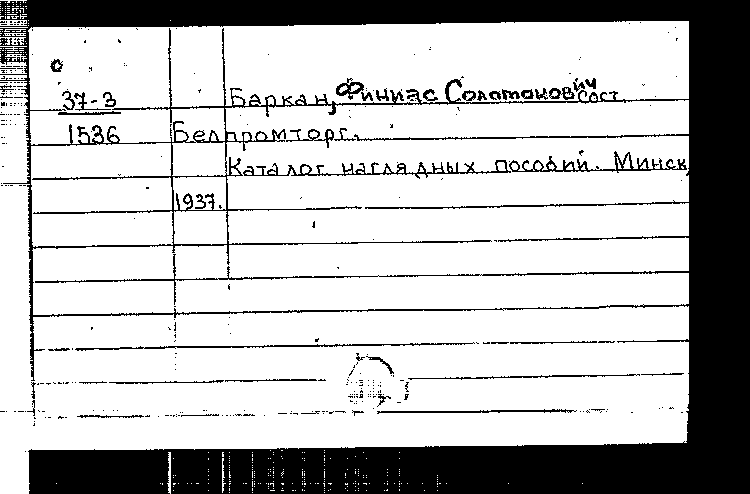 37-3 Баркан, Финиас Соломонович сост.
1536 Белпромторг.
Каталог наглядных пособий. Минск,
1937.